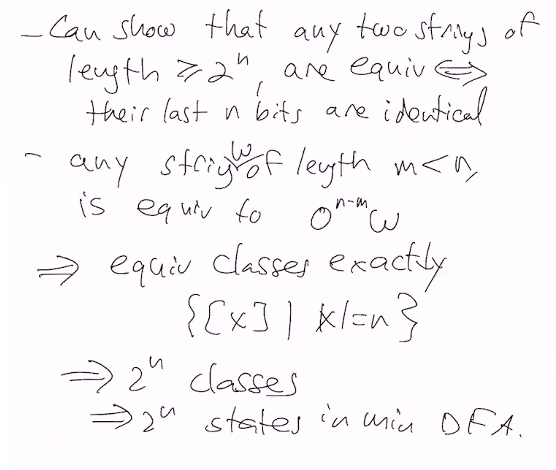 - Can show that any two strings of
length ≥ 2ⁿ, are equiv ⟺
their last n bits are identical
- any string w of length m < n,
is equiv to 0ⁿ⁻ᵐw
⇒ equiv classes exactly
{[x] | |x|=n}
⇒ 2ⁿ classes
⇒ 2ⁿ states in min DFA.